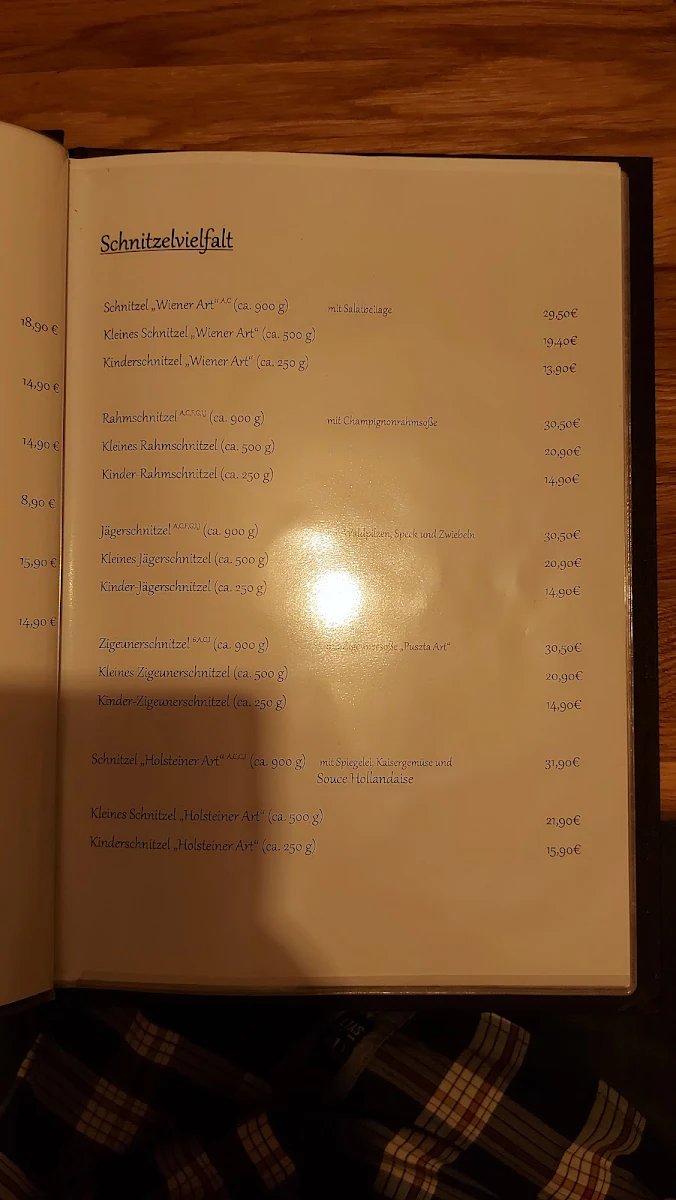 18,90 €
14,90 €
14,90 €
8,90 €
15,90 €
14,90 €
Schnitzelvielfalt
Schnitzel „Wiener Art“ A,C (ca. 900 g) mit Salatbeilage 29,50€
Kleines Schnitzel „Wiener Art“ (ca. 500 g) 19,40€
Kinderschnitzel „Wiener Art“ (ca. 250 g) 13,90€
Rahmschnitzel A,C,F,G,I,J (ca. 900 g) mit Champignonrahmsoße 30,50€
Kleines Rahmschnitzel (ca. 500 g) 20,90€
Kinder-Rahmschnitzel (ca. 250 g) 14,90€
Jägerschnitzel A,C,F,G,I,J (ca. 900 g) Waldpilzen, Speck und Zwiebeln 30,50€
Kleines Jägerschnitzel (ca. 500 g) 20,90€
Kinder-Jägerschnitzel (ca. 250 g) 14,90€
Zigeunerschnitzel 6,A,C,I (ca. 900 g) mit Zigeunersoße „Puszta Art“ 30,50€
Kleines Zigeunerschnitzel (ca. 500 g) 20,90€
Kinder-Zigeunerschnitzel (ca. 250 g) 14,90€
Schnitzel „Holsteiner Art“ A,C,G,I (ca. 900 g) mit Spiegelei, Kaisergemüse und 31,90€
Souce Hollandaise
Kleines Schnitzel „Holsteiner Art“ (ca. 500 g) 21,90€
Kinderschnitzel „Holsteiner Art“ (ca. 250 g) 15,90€